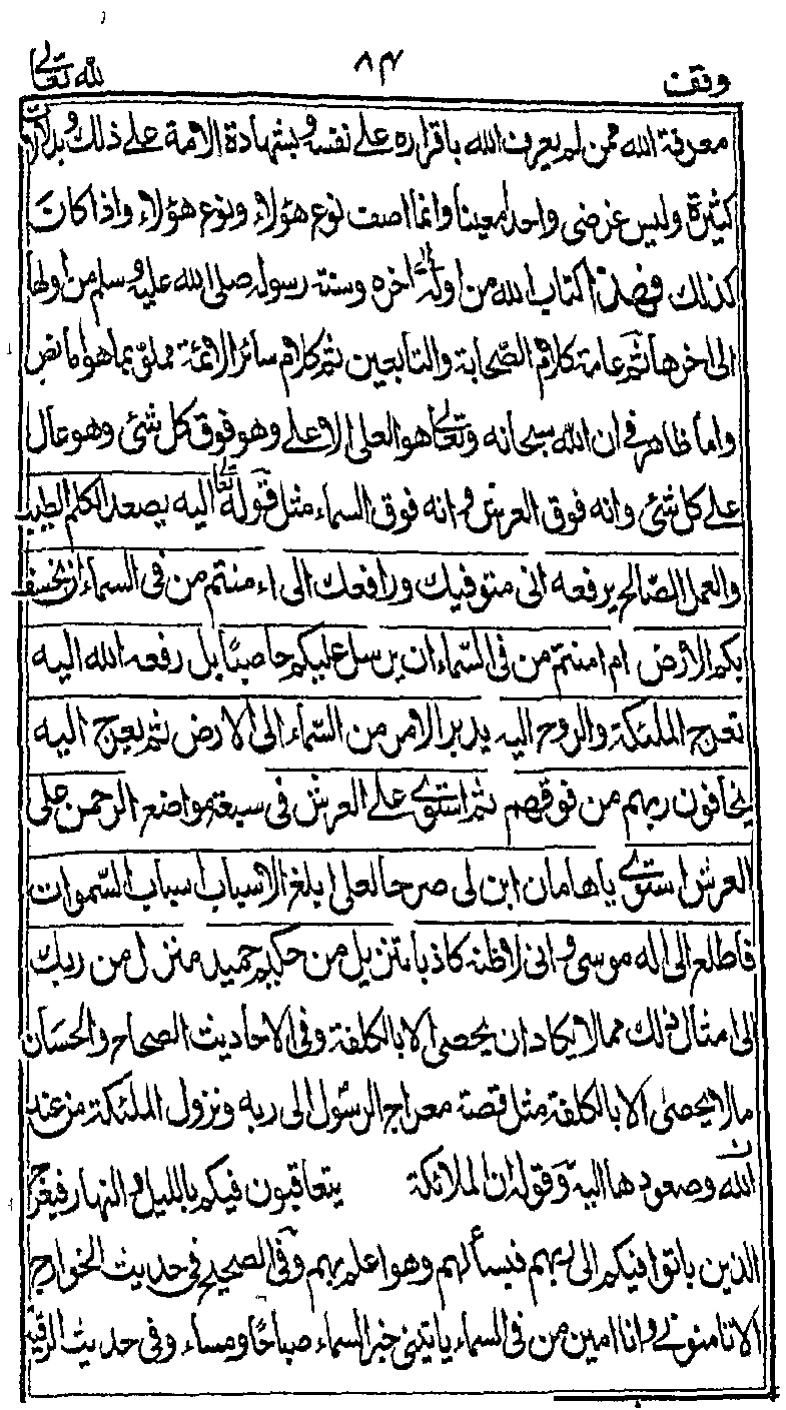 وقف ٨٤ لله تعالى
معرفة الله ممن لم يعرف الله باقراره على نفسه وبشهادة الامة على ذلك وبدلالات
كثيرة وليس غرضى واحدا معينا وانما اصف نوع هؤلاء ونوع هؤلاء واذا كان
كذلك فهذا كتاب الله من اوله الى اخره وسنة رسوله صلى الله عليه وسلم من اولها
الى اخرها ثم عامة كلام الصحابة والتابعين ثم كلام سائر الائمة مملؤ بما هو اما نص
واما ظاهر فى ان الله سبحانه وتعالى هو العلى الاعلى وهو فوق كل شئ وهو عال
على كل شئ وانه فوق العرش وانه فوق السماء مثل قوله تعالى اليه يصعد الكلم الطيب
والعمل الصالح يرفعه انى متوفيك ورافعك الى اء منتم من فى السماء ان يخسف
بكم الارض ام امنتم من فى السماء ان يرسل عليكم حاصبا بل رفعه الله اليه
تعرج الملئكة والروح اليه يدبر الامر من السماء الى الارض ثم يعرج اليه
يخافون ربهم من فوقهم ثم استوى على العرش فى سبعة مواضع الرحمن على
العرش استوى ياهامان ابن لى صرحا لعلى ابلغ الاسباب اسباب السموات
فاطلع الى اله موسى وانى لاظنه كاذبا تنزيل من حكيم حميد منزل من ربك
الى امثال ذلك مما لا يكاد ان يحصى الا بالكلفة وفى الاحاديث الصحاح والحسان
مالا يحصى الا بالكلفة مثل قصة معراج الرسول الى ربه ونزول الملئكة من عند
الله وصعودها اليه وقوله ان الملائكة يتعاقبون فيكم بالليل والنهار فيعرج
الذين باتوا فيكم الى ربهم فيسألهم وهو اعلم بهم وفى الصحيح فى حديث الخوارج
الا تامنونى وانا امين من فى السماء ياتينى خبر السماء صباحا ومساء وفى حديث الرقية